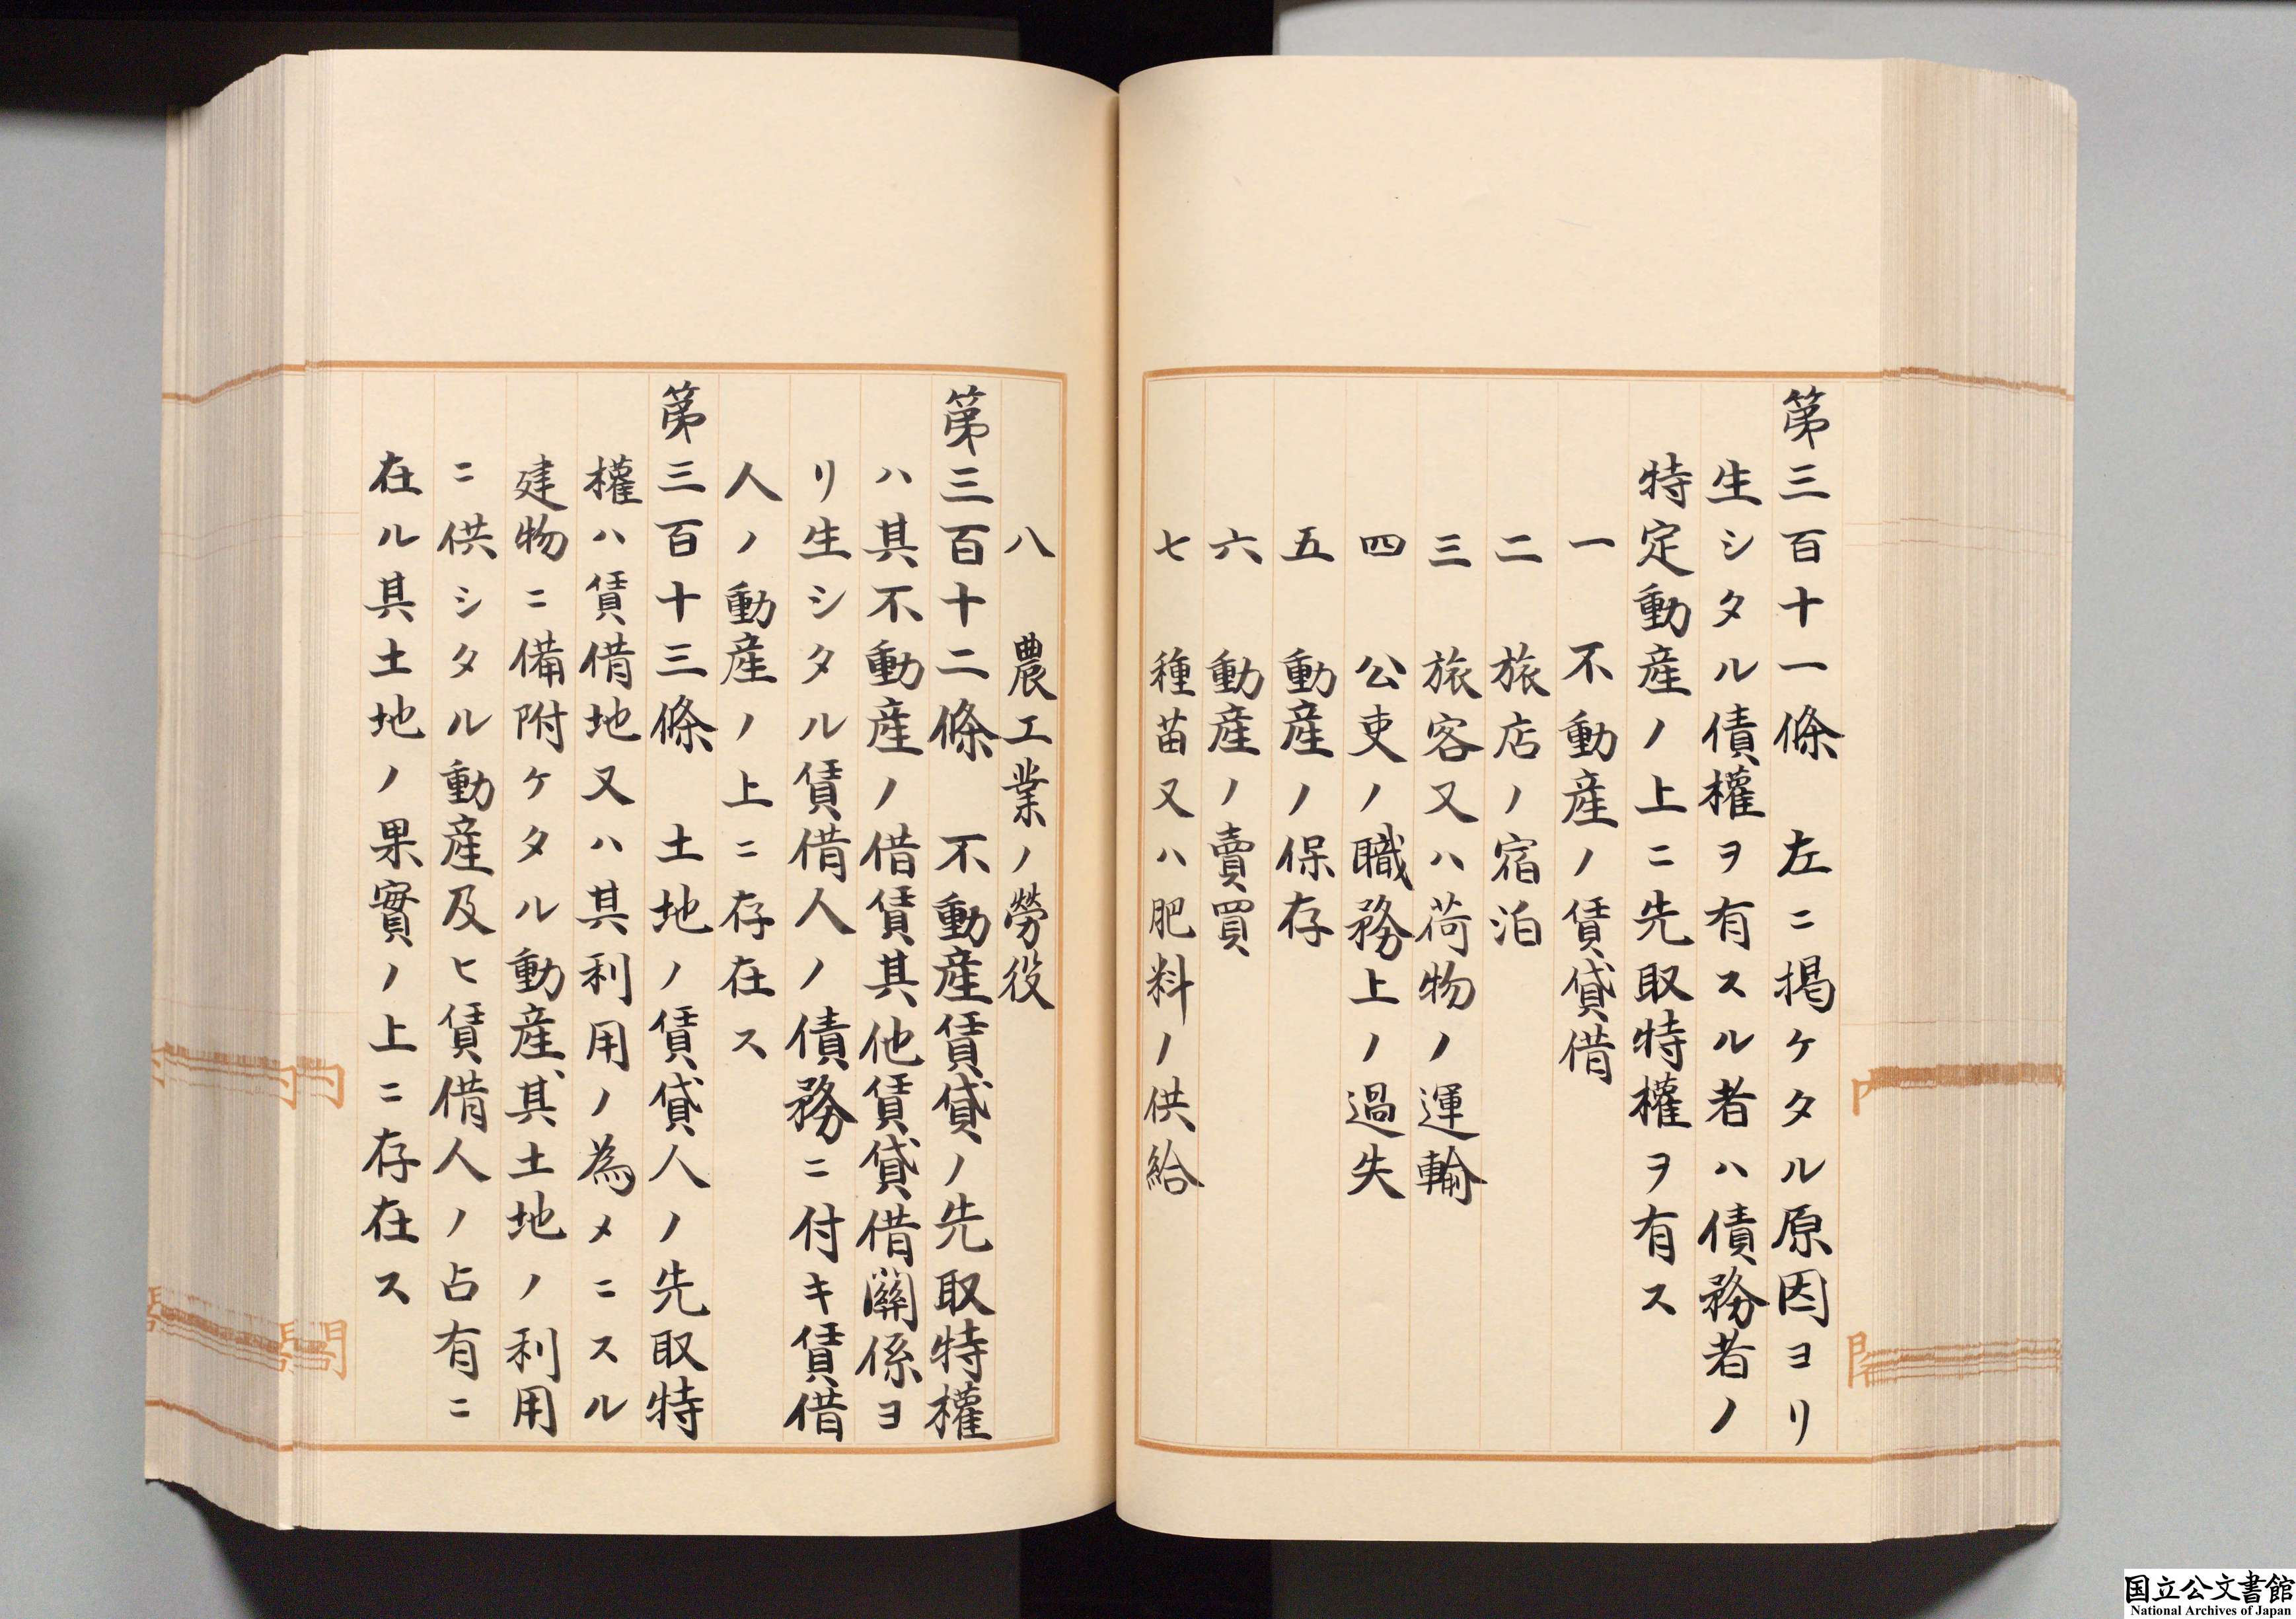 第三百十一條　左ニ掲ケタル原因ヨリ
生シタル債權ヲ有スル者ハ債務者ノ
特定動產ノ上ニ先取特權ヲ有ス
一　不動產ノ賃貸借
二　旅店ノ宿泊
三　旅客又ハ荷物ノ運輸
四　公吏ノ職務上ノ過失
五　動產ノ保存
六　動產ノ賣買
七　種苗又ハ肥料ノ供給
八　農工業ノ勞役
第三百十二條　不動產賃貸ノ先取特權
ハ其不動產ノ借賃其他賃貸借關係ヨ
リ生シタル賃借人ノ債務ニ付キ賃借
人ノ動產ノ上ニ存在ス
第三百十三條　土地ノ賃貸人ノ先取特
權ハ賃借地又ハ其利用ノ為メニスル
建物ニ備附ケタル動產、其土地ノ利用
ニ供シタル動產及ヒ賃借人ノ占有ニ
在ル其土地ノ果實ノ上ニ存在ス
国立公文書館
National Archives of Japan